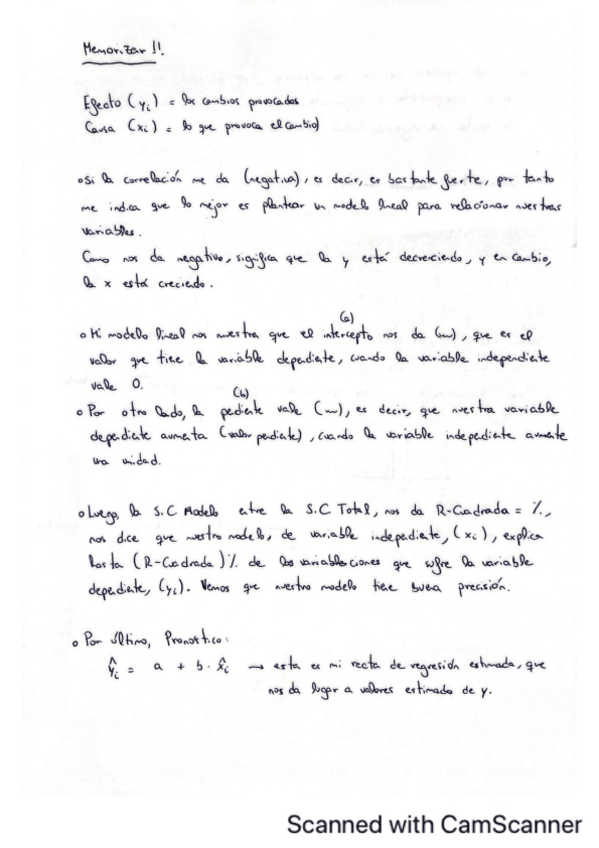 Memorizar !!.
Efecto (yi) = los cambios provocados
Causa (xi) = lo que provoca el cambio)
• Si la correlación me da (negativa), es decir, es bastante fuerte, por tanto
me indica que lo mejor es plantear un modelo lineal para relacionar nuestras
variables.
Como nos da negativo, significa que la y está decreciendo, y en cambio,
la x está creciendo.
(a)
• Mi modelo lineal nos muestra que el intercepto nos da (~), que es el
valor que tiene la variable dependiente, cuando la variable independiente
vale 0.
(b)
• Por otro lado, la pediente vale (~), es decir, que nuestra variable
dependiente aumenta (valor pendiente), cuando la variable independiente aumente
una unidad.
• Luego, la S.C Modelo entre la S.C Total, nos da R-Cuadrada = %,
nos dice que nuestro modelo, de variable independiente, (xi), explica
hasta (R-Cuadrada)% de las variablesciones que sufre la variable
dependiente, (yi). Vemos que nuestro modelo tiene buena precisión.
• Por último, Pronostico:
ŷi = a + b · x̂i → esta es mi recta de regresión estimada, que
nos da lugar a valores estimado de y.
Scanned with CamScanner